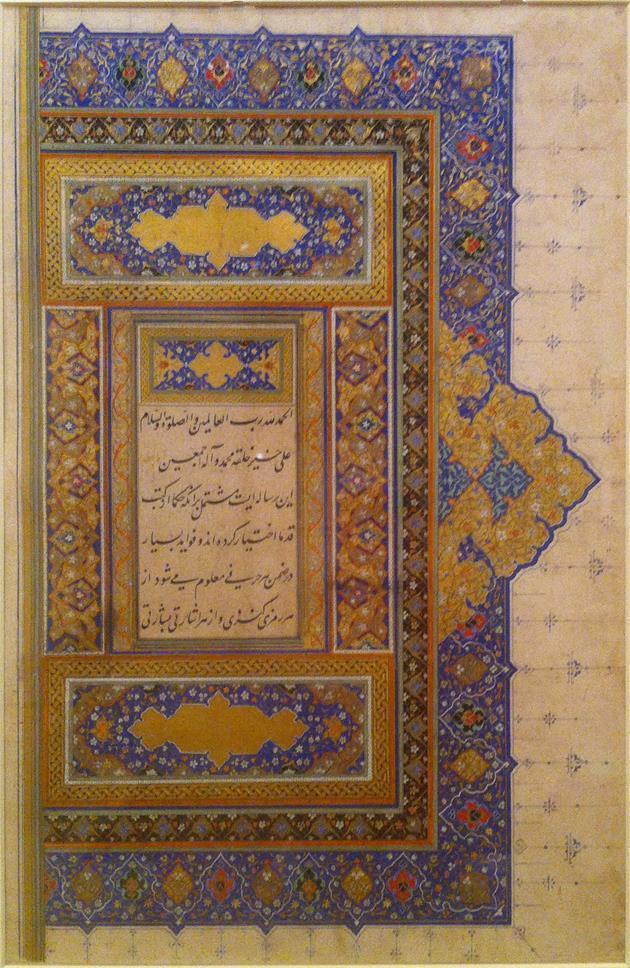 الحمد لله رب العالمین و الصلوة والسلام
علی خیر خلقه محمد و آله اجمعین
این رساله ایست مشتمل برانکه حکما از کتب
قدما اختیار کرده اند و فواید بسیار
در ضمن هر حرفی معلوم می شود از
هر رمزی کنزی و از هر اشارتی بشارتی